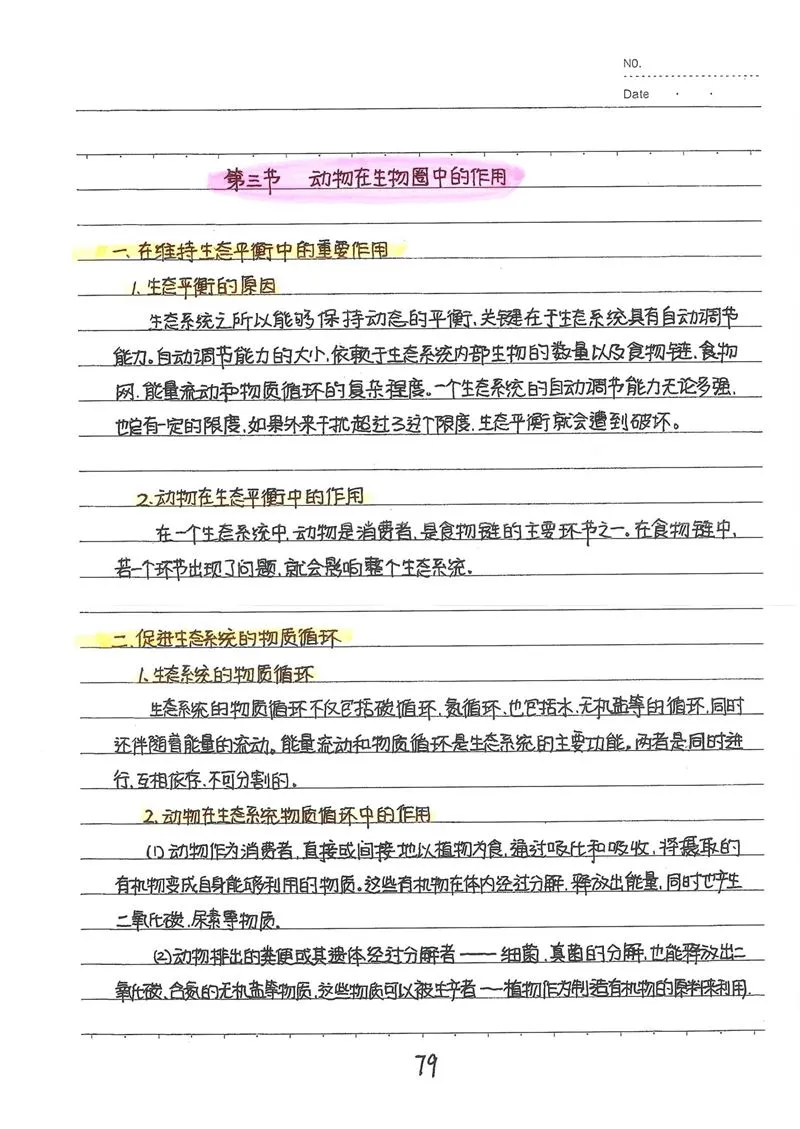 NO.
Date
第三节 动物在生物圈中的作用
一、在维持生态平衡中的重要作用
1、生态平衡的原因
生态系统之所以能够保持动态的平衡,关键在于生态系统具有自动调节
能力。自动调节能力的大小,依赖于生态系统内部生物的数量以及食物链,食物
网,能量流动和物质循环的复杂程度。一个生态系统的自动调节能力无论多强,
也总有一定的限度,如果外来干扰超过了这个限度,生态平衡就会遭到破坏。
2、动物在生态平衡中的作用
在一个生态系统中,动物是消费者,是食物链的主要环节之一。在食物链中,
若一个环节出现了问题,就会影响整个生态系统。
二、促进生态系统的物质循环
1、生态系统的物质循环
生态系统的物质循环不仅包括碳循环、氮循环、也包括水、无机盐等的循环,同时
还伴随着能量的流动。能量流动和物质循环是生态系统的主要功能。两者是同时进
行、互相依存、不可分割的。
2、动物在生态系统物质循环中的作用
(1)动物作为消费者,直接或间接地以植物为食,通过消化和吸收,将摄取的
有机物变成自身能够利用的物质。这些有机物在体内经过分解,释放出能量,同时也产生
二氧化碳、尿素等物质。
(2)动物排出的粪便或其遗体经过分解者——细菌、真菌的分解,也能释放出二
氧化碳、含氮的无机盐等物质,这些物质可以被生产者——植物作为制造有机物的原料来利用.
79